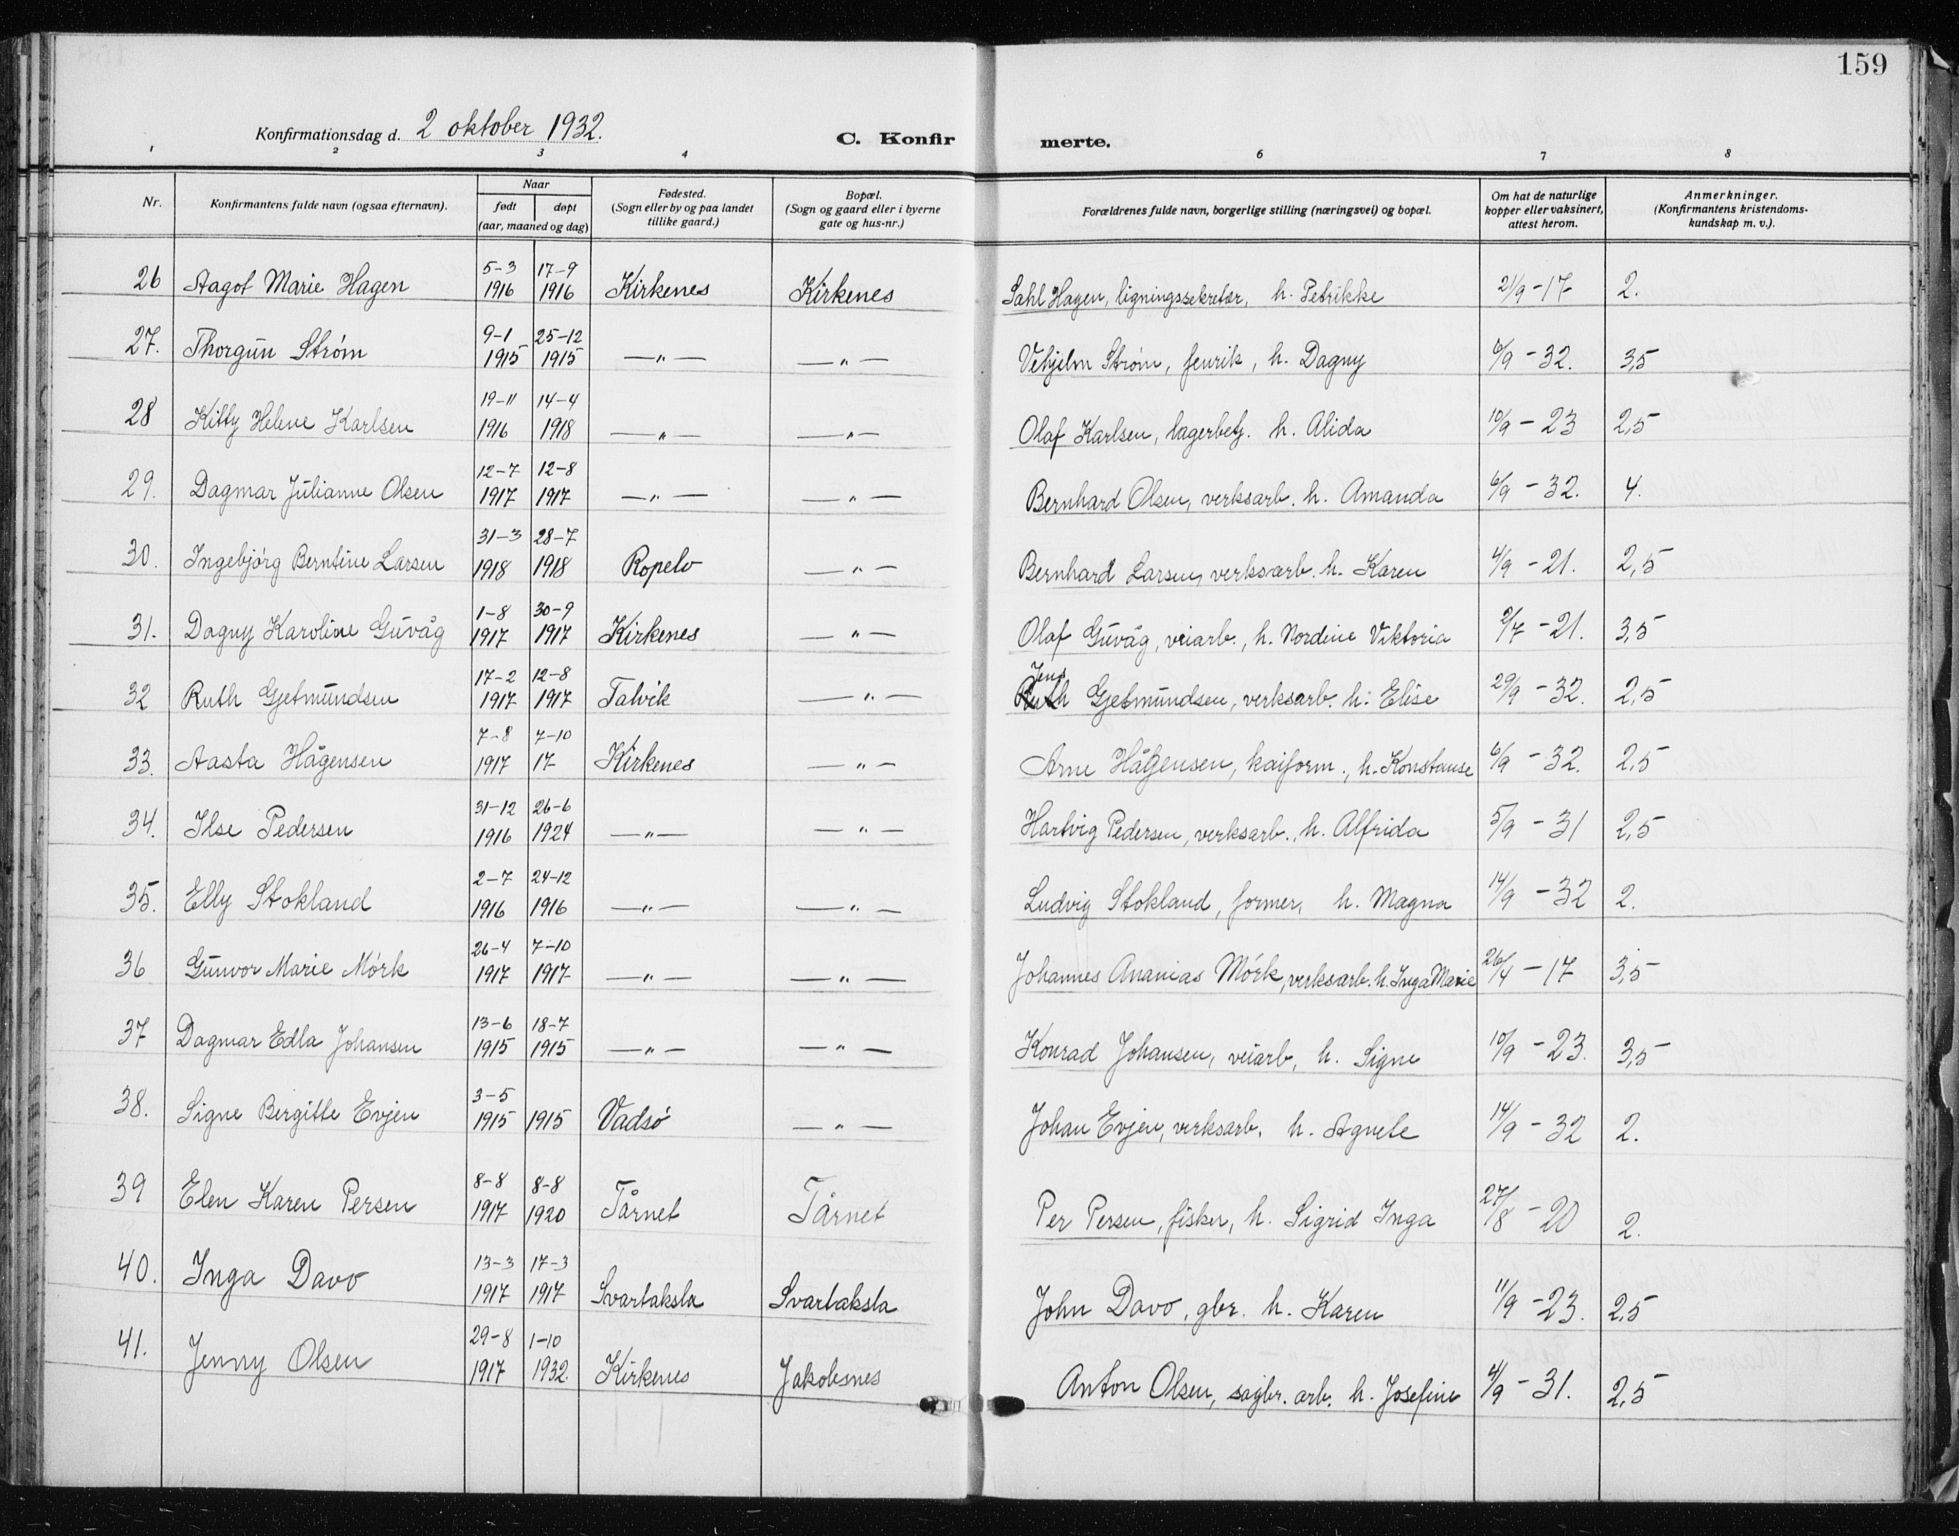 159
Konfirmationsdag d. 2 oktober 1932.
C. Konfirmerte.
1 2 3 4 6 7 8
Nr.
Konfirmantens fulde navn (ogsaa efternavn).
Naar
født
døpt
(aar, maaned og dag)
Fødested.
(Sogn eller by og paa landet
tillike gaard.)
Bopæl.
(Sogn og gaard eller i byerne
gate og hus-nr.)
Forældrenes fulde navn, borgerlige stilling (næringsvei) og bopæl.
Om hat de naturlige
kopper eller vaksinert,
attest herom.
Anmerkninger.
(Konfirmantens kristendoms-
kundskap m. v.).
26 Aagot Marie Hagen 5-3 1916 17-9 1916 Kirkenes Kirkenes Sahl Hagen, ligningssekretær, h. Petrikke 21/9-17 2.
27. Thorgun Strøm 9-1 1915 25-12 1915 —„— —„— Vehjelm Strøm, fenrik, h. Dagny 6/9-32. 3,5
28 Kitty Helene Karlsen 19-11 1916 14-4 1918 —„— —„— Olaf Karlsen, lagerbetj. h. Alida 10/9-23 2,5
29. Dagmar Julianne Olsen 12-7 1917 12-8 1917 —„— —„— Bernhard Olsen, verksarb. h. Amanda 6/9-32. 4.
30. Ingebjørg Berntine Larsen 31-3 1918 28-7 1918 Ropelv —„— Bernhard Larsen, verksarb. h. Karen 4/9-21. 2,5
31. Dagny Karoline Guvåg 1-8 1917 30-9 1917 Kirkenes —„— Olaf Guvåg, veiarb., h. Nordine Viktoria 2/7-21. 3,5
32 Ruth Gjetmundsen 17-2 1917 12-8 1917 Talvik —„— Jens Ruth Gjetmundsen, verksarb. h. Elise 29/9-32. 2,5
33. Aasta Hågensen 7-8 1917 7-10 17 Kirkenes —„— Arne Hågensen, kaiform., h. Konstanse 6/9-32. 2,5
34. Ilse Pedersen 31-12 1916 26-6 1924 —„— —„— Hartvig Pedersen, verksarb., h. Alfrida 5/9-31 2,5
35. Elly Stokland 2-7 1916 24-12 1916 —„— —„— Ludvig Stokland, former, h. Magna 14/9-32 2.
36 Gunvor Marie Mørk 26-4 1917 7-10 1917 —„— —„— Johannes Ananias Mørk, verksarb. h. Inga Marie 26/4-17 3,5
37 Dagmar Edla Johansen 13-6 1915 18-7 1915 —„— —„— Konrad Johansen, veiarb, h. Signe 10/9-23. 3,5
38. Signe Bergitte Evjen 3-5 1915 1915 Vadsø —„— Johan Evjen, verksarb. h. Agnete 14/9-32 2.
39 Elen Karen Persen 8-8 1917 8-8 1920 Tårnet Tårnet Per Persen, fisker, h. Sigrid Inga 27/8-20 2.
40. Inga Davo 13-3 1917 17-3 1917 Svartaksla Svartaksla John Davo, gbr. h. Karen 11/9-23. 2,5
41. Jenny Olsen 29-8 1917 1-10 1932. Kirkenes Jakobsnes Anton Olsen, sagbr. arb. h. Josefine 4/9-31. 2,5